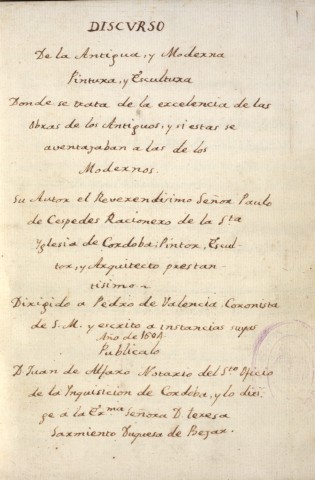 DISCVRSO
De la Antigua, y Moderna
Pintura, y Escultura
Donde se trata de la excelencia de las
Obras de los Antiguos, y si estas se
aventajaban a las de los
Modernos.
Su Autor el Reverendisimo Señor Paulo
de Cespedes Racionero de la Sta
Yglesia de Cordoba; Pintor, Escul-
tor, y Arquitecto prestan
tisimo
Dirigido a Pedro de Valencia Coronista
de S. M. y escrito a instancias suyas
Año de 1604
Publicalo
D. Juan de Alfaro Notario del Sto Oficio
de la Inquisicion de Cordoba, y lo diri-
ge a la Exma Señora Da Teresa
Sarmiento Duquesa de Bejar.